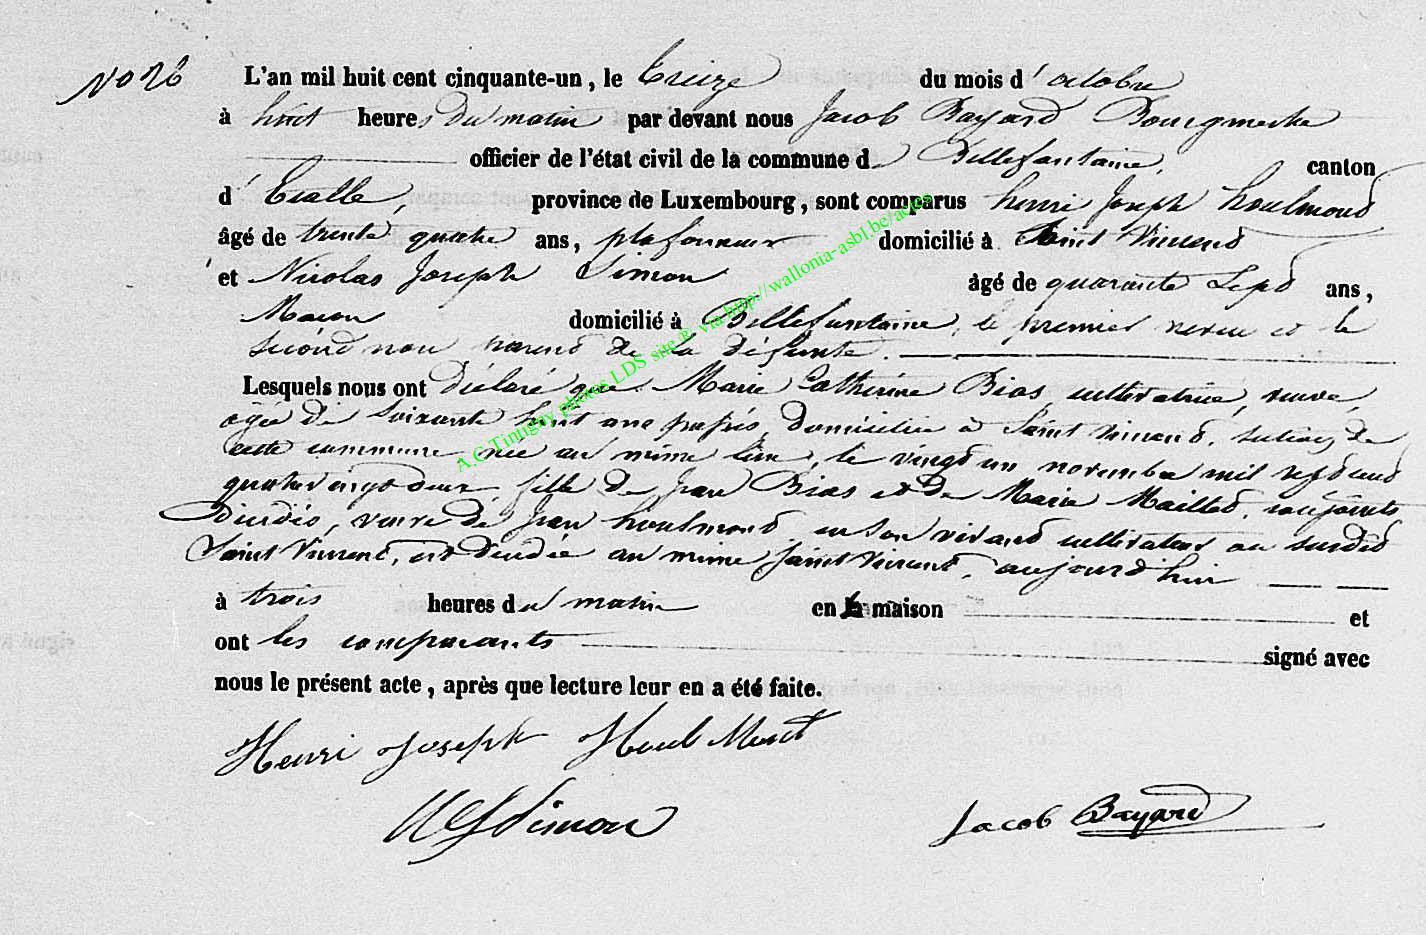 No 26
L'an mil huit cent cinquante-un, le treize du mois d'octobre
à huit heures du matin par devant nous Jacob Bayard Bourgmestre
officier de l'état civil de la commune d Bellefontaine, canton
d'Etalle, province de Luxembourg, sont comparus henri Joseph houlmond
âgé de trente quatre ans, plafonneur domicilié à Saint Vincend
et Nicolas Joseph Simon âgé de quarante Sepd ans,
Macon domicilié à Bellefontaine, le premier neveu et le
second non parend de la défunte.
Lesquels nous ont Déclaré que Marie Catherine Bias, cultivatrice, veuve,
agée de Soixante huit ans passés, domiciliée à Saint Vincend, section de
cette commune née au même lieu, le vingd un novembre mil sepd cend
quatrevingd deux fille de Jean Bias et de Marie Mailled, conjoints
Décédés, veuve de Jean houlmond en son vivand cultivateur au susded
Saint Vincent, est décédée au même Saint Vincent, aujourd'hui
à trois heures du matin en la maison et
ont les comparants signé avec
nous le présent acte, après que lecture leur en a été faite.
Henri Joseph Houlmont
NJSimon
Jacob Bayard
A.C.Tintigny photos LDS site R. via http://wallonia-asbl.be/actes